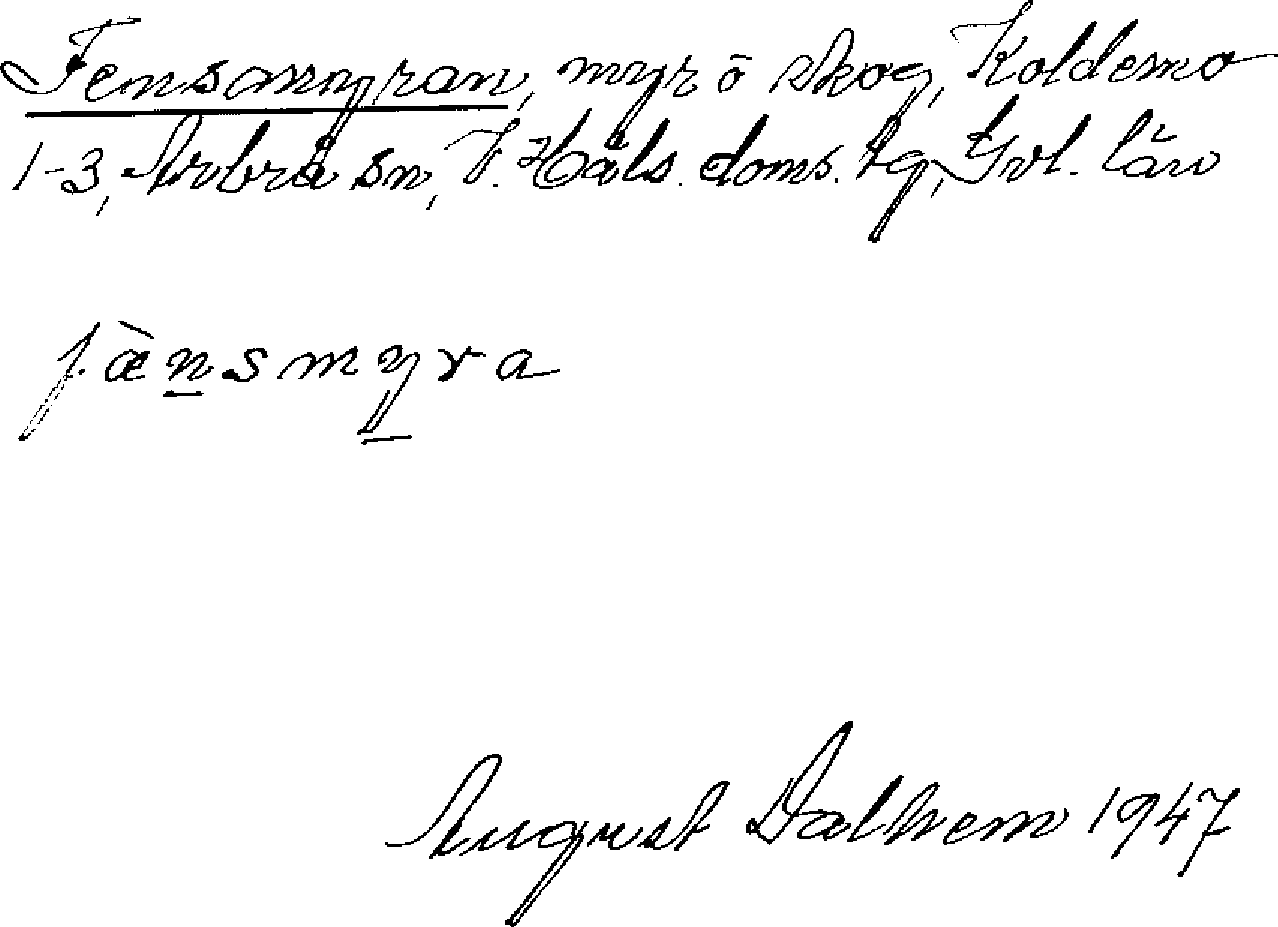 Fensamyran, myr o skog, Koldemo
1-3, Arbrå sn, V. Häls. doms. tg, Gvl. län
fæ̀nsmyra
August Dalhem 1947